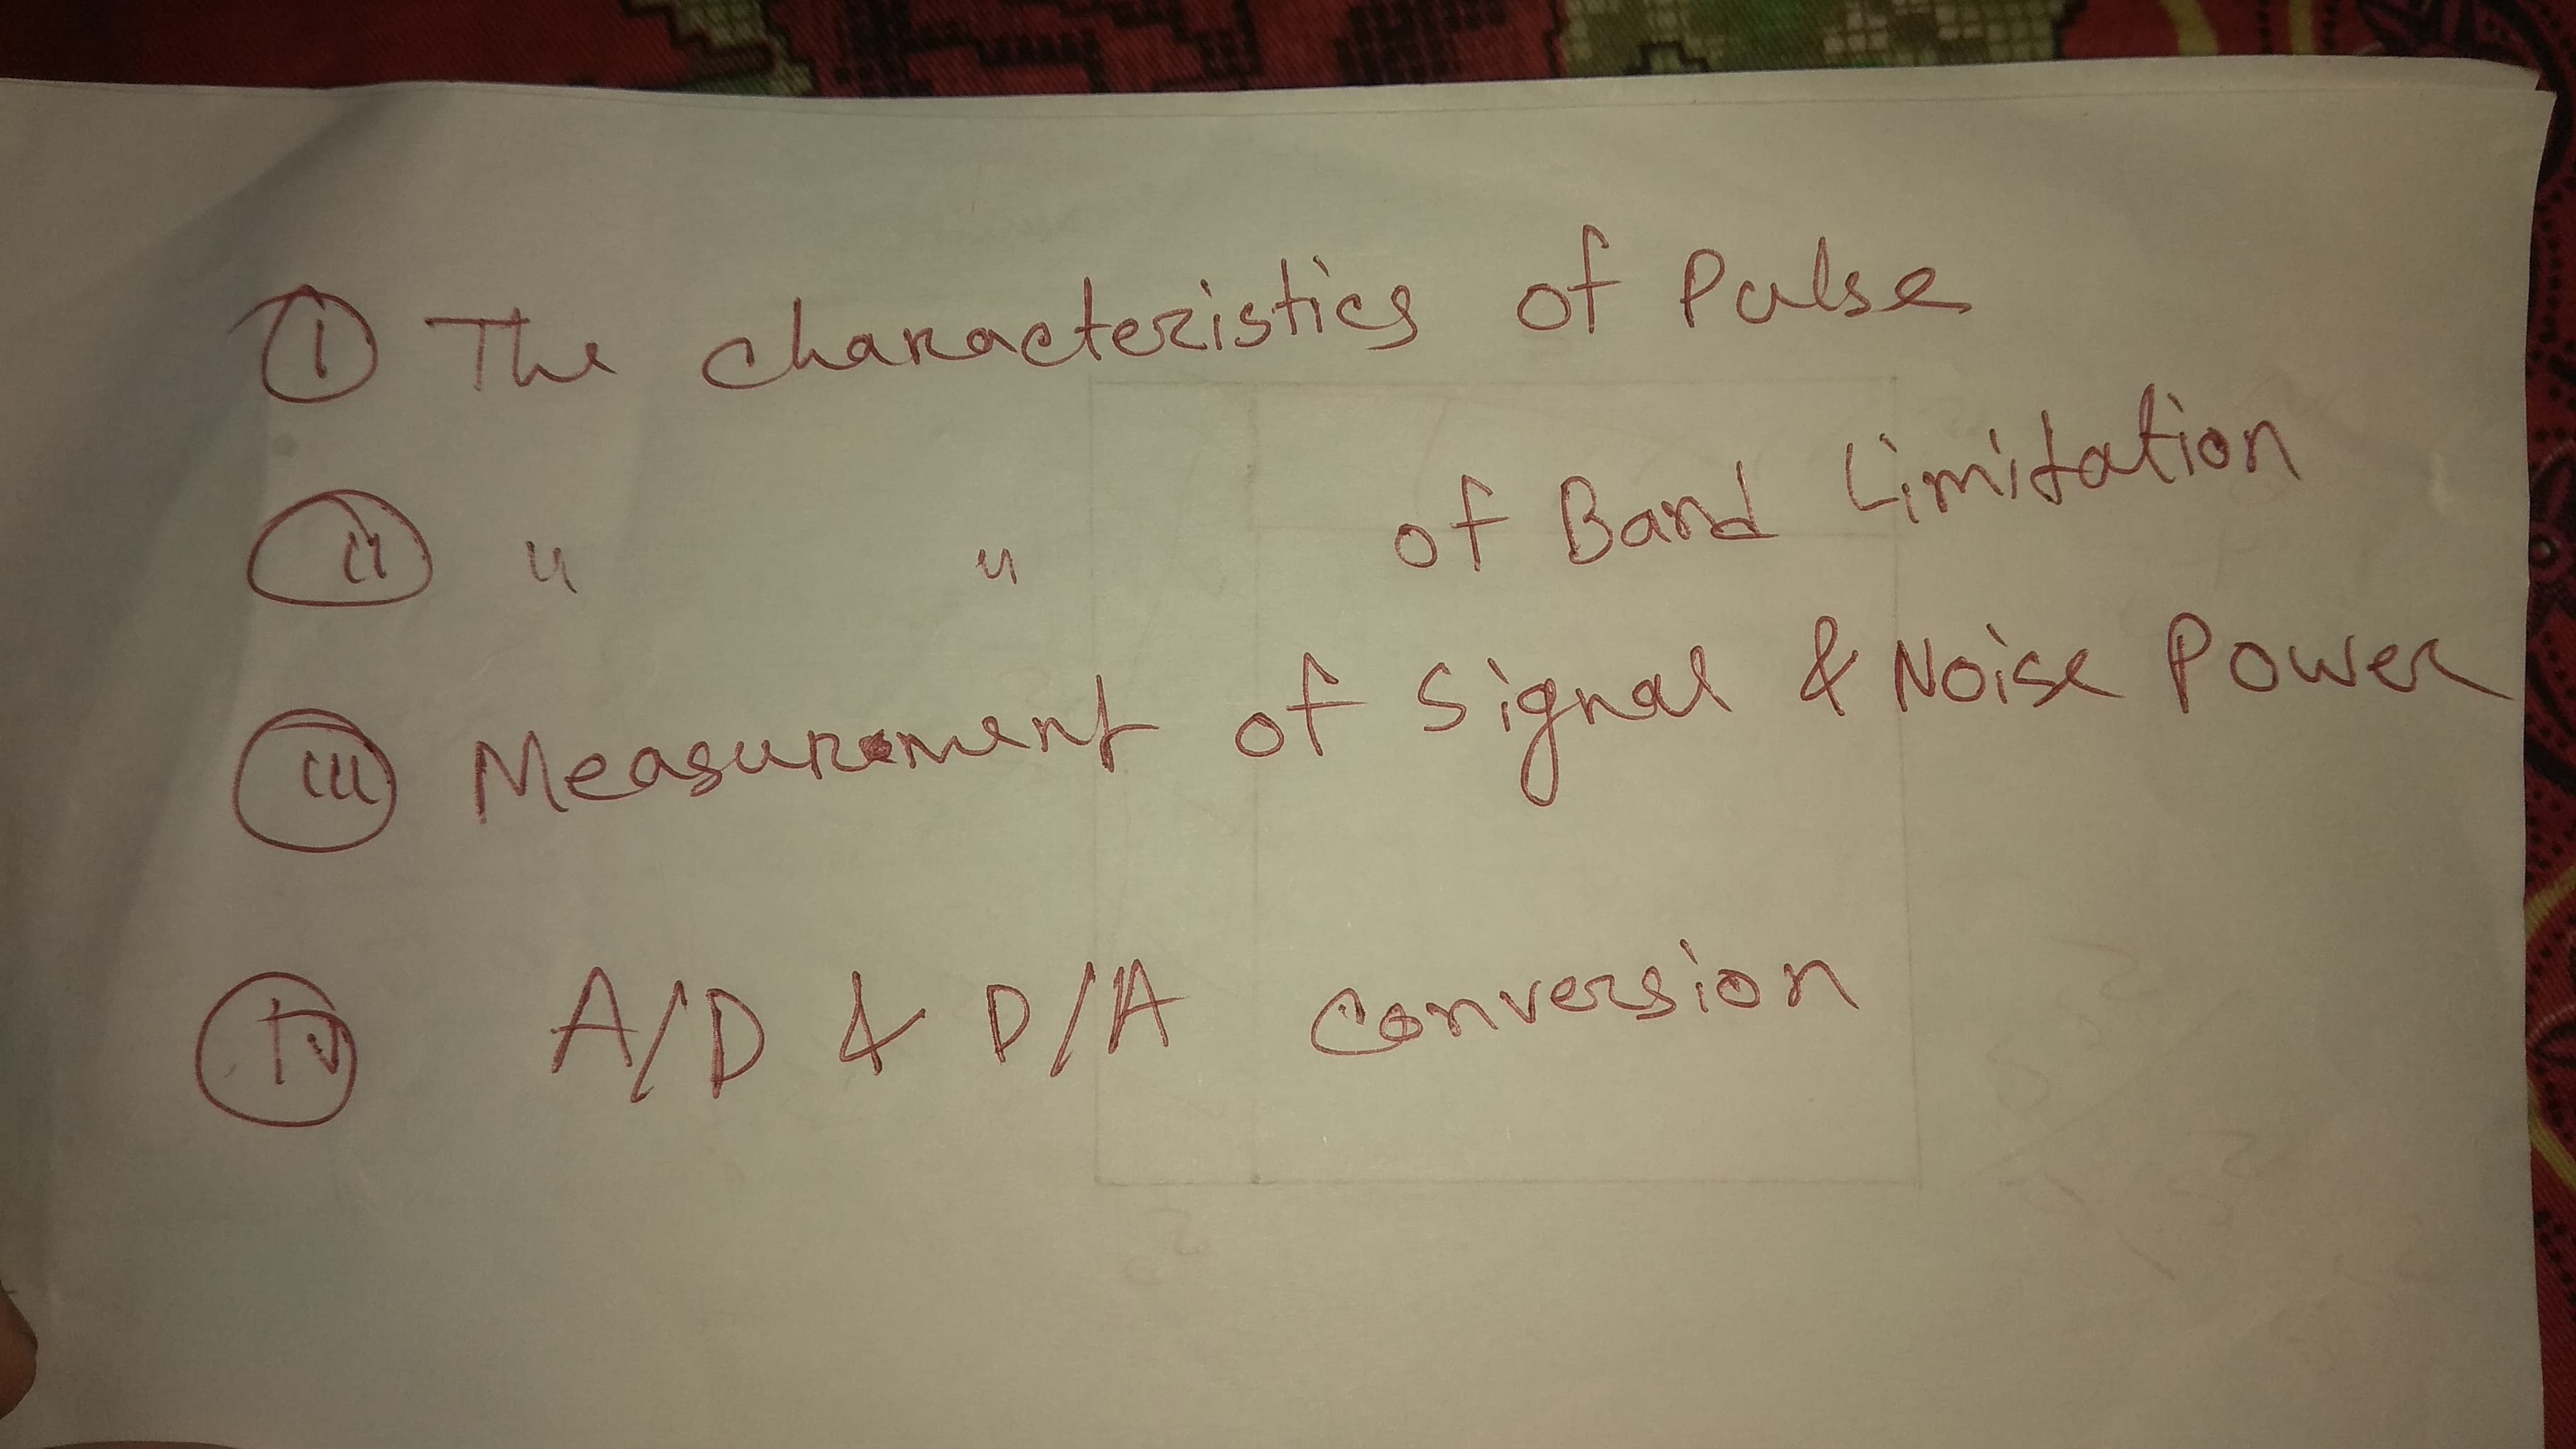 ① The characteristics of Pulse
(ii) " " of Band Limitation
(iii) Measurement of Signal & Noise Power
(iv) A/D & D/A conversion